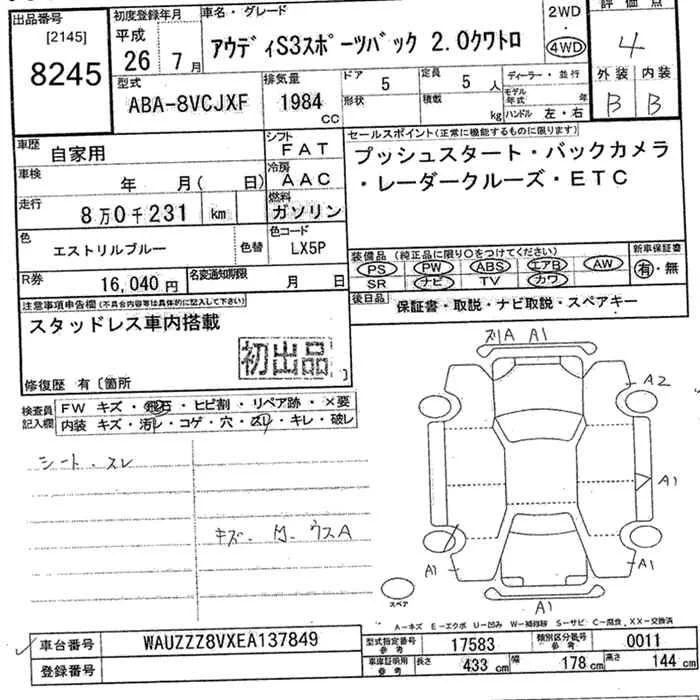 出品番号
[2145]
8245
初度登録年月
平成
26年7月
車名・グレード
アウディS3スポーツバック 2.0クワトロ
2WD
4WD
評価点
4
外装 内装
B B
型式
ABA-8VCJXF
排気量
1984
CC
ドア
5
形状
定員
5人
積載
kg
ディーラー・並行
モデル年式 年
ハンドル 左・右
車歴
自家用
シフト
FAT
車検
年 月( 日)
冷房
AAC
走行
8万0千231 km
燃料
ガソリン
色
エストリルブルー
色替
色コード
LX5P
R券
16,040円
名変通知期限
月 日
セールスポイント(正常に機能するものに限ります)
プッシュスタート・バックカメラ
・レーダークルーズ・ETC
装備品(純正品に限り○をつけてください)
PS PW ABS エアB AW
SR ナビ TV カワ
新車保証書
有・無
後日品
保証書・取説・ナビ取説・スペアキー
注意事項申告欄(不具合内容等は具体的に記入して下さい)
スタッドレス車内搭載
初出品
修復歴 有〔箇所 〕
検査員記入欄
FW キズ・飛石・ヒビ割・リペア跡・×要
内装 キズ・汚レ・コゲ・穴・スレ・キレ・破レ
シート・スレ
キズ・
ウスA
A1
A2
A1
A1
A1
A1
スペア
A-キズ E-エクボ U-凹み W-補修跡 S-サビ C-腐食 XX-交換済
車台番号
WAUZZZ8VXEA137849
登録番号
型式指定番号
参考
17583
類別区分番号
参考
0011
車庫証明用
参考
長さ
433 cm
幅
178 cm
高さ
144 cm